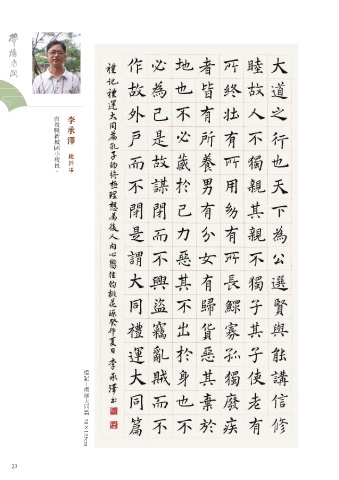 李承澤
大道之行也天下為公選賢與能講信修
睦故人不獨親其親不獨子其子使老有
所終壯有所用幼有所長鰥寡孤獨廢疾
者皆有所養男有分女有歸貨惡其棄於
地也不必藏於己力惡其不出於身也不
必為己是故謀閉而不興盜竊亂賊而不
作故外戶而不閉是謂大同禮運大同篇
禮記禮運大同篇孔子的終極理想為後人內心嚮往的桃花源癸卯夏日李承澤書
禮記‧禮運大同篇
23